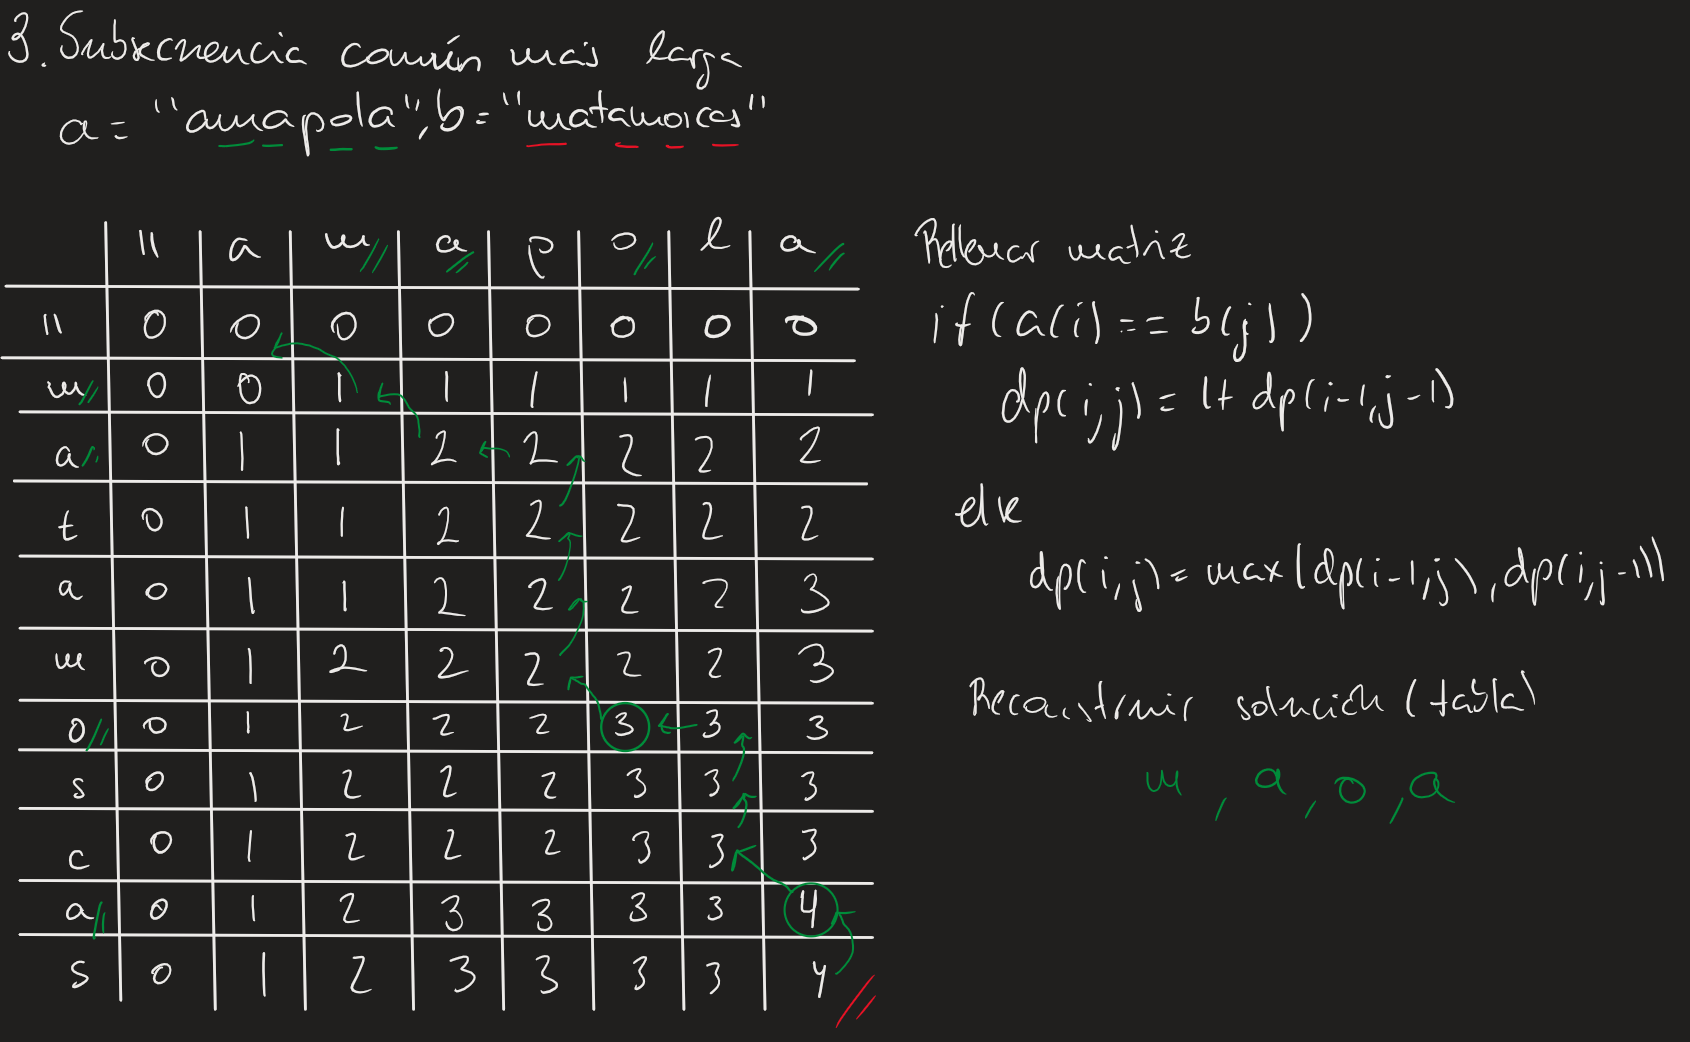 3. Subsecuencia común más larga
a = "amapola", b = "matamoscas"
" a m a p o l a
" 0 0 0 0 0 0 0 0
m 0 0 1 1 1 1 1 1
a 0 1 1 2 2 2 2 2
t 0 1 1 2 2 2 2 2
a 0 1 1 2 2 2 2 3
m 0 1 2 2 2 2 2 3
o 0 1 2 2 2 3 3 3
s 0 1 2 2 2 3 3 3
c 0 1 2 2 2 3 3 3
a 0 1 2 3 3 3 3 4
s 0 1 2 3 3 3 3 4
Rellenar matriz
if (a(i) == b(j))
dp(i,j) = 1+ dp(i-1,j-1)
else
dp(i,j) = max(dp(i-1,j), dp(i,j-1))
Reconstruir solución (tabla)
m, a, o, a